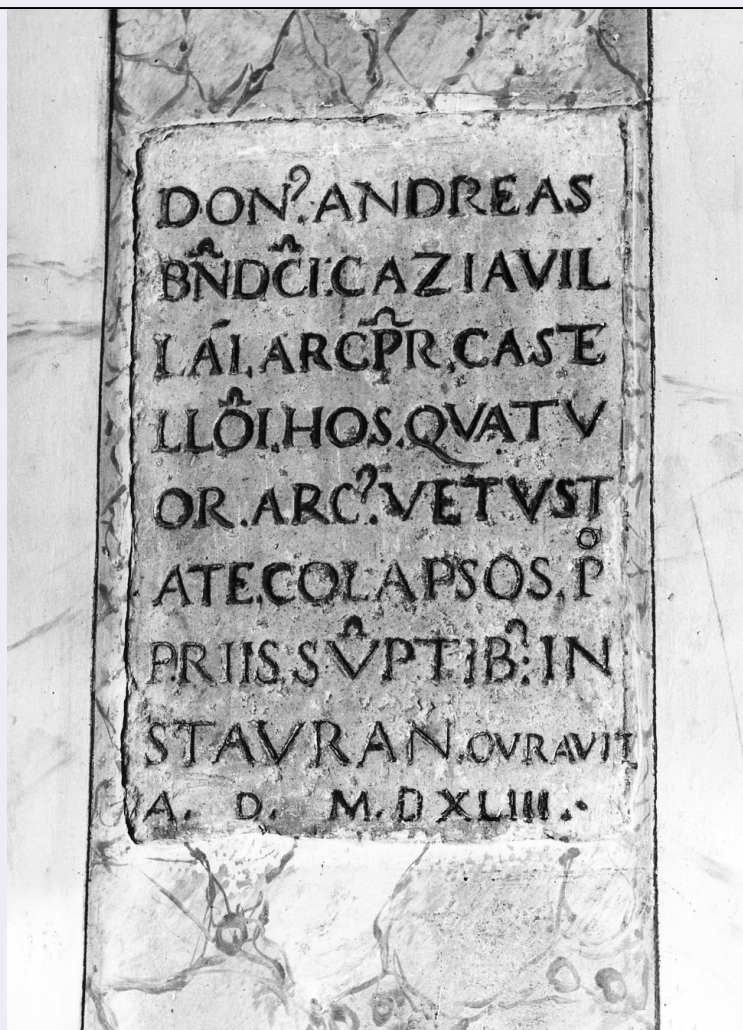 DON⁹. ANDREAS
BN̄DC̄I. CAZIAVIL
LĀI. ARCP̄R. CASTE
LLŌI. HOS. QVATV
OR. ARC⁹. VETVST
ATE. COLAPSOS. P̊
PRIIS. SV̄PTIB̄: IN
STAVRAN. CVRAVIT
A. D. M. DXLIII.